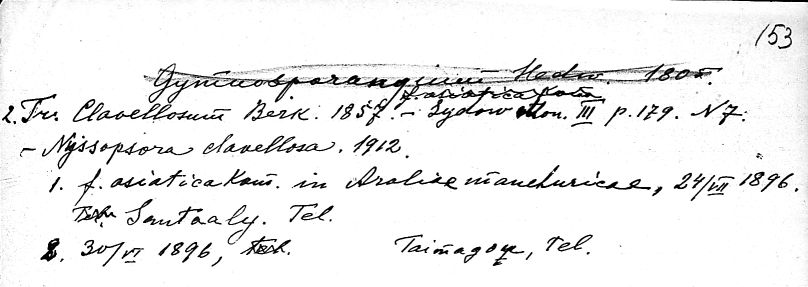 153
Gymnosporangium Hedw. 1805.
f. asiatica Kom.
2. Tr. Clavellosum Berk. 1857. – Sydow Mon. III p. 179. N 7.
– Nyssopsora clavellosa. 1912.
1. f. asiatica Kom. in Araliae manchuricae, 24/VII 1896.
Santaaly. Tel.
2. 30/VI 1896, Taimagou, Tel.